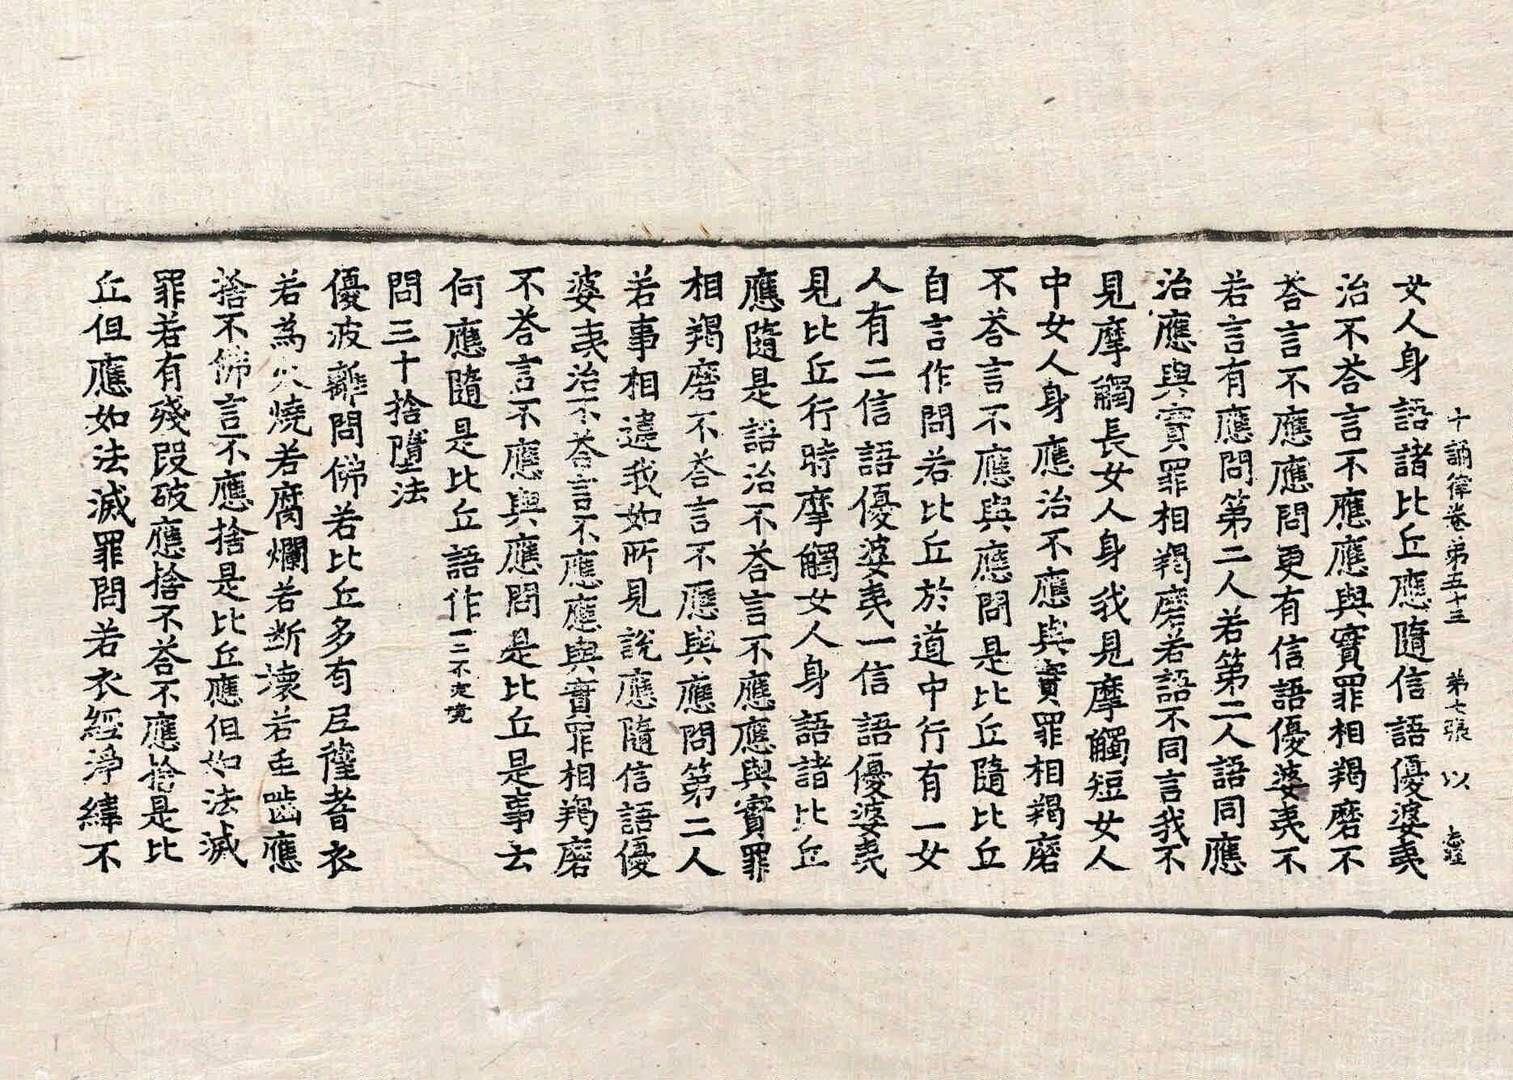 十誦律卷第五十三 第七張 以
女人身語諸比丘應隨信語優婆夷
治不荅言不應應與實罪相羯磨不
荅言不應應問更有信語優婆夷不
若言有應問第二人若第二人語同應
治應與實罪相羯磨若語不同言我不
見摩觸長女人身我見摩觸短女人
中女人身應治不應與實罪相羯磨
不荅言不應與應問是比丘隨比丘
自言作問若比丘於道中行有一女
人有二信語優婆夷一信語優婆夷
見比丘行時摩觸女人身語諸比丘
應隨是語治不荅言不應應與實罪
相羯磨不荅言不應與應問第二人
若事相違我如所見說應隨信語優
婆夷治不荅言不應應與實罪相羯磨
不荅言不應與應問是比丘是事云
何應隨是比丘語作二不定竟
問三十捨墮法
優波離問佛若比丘多有尼薩耆衣
若為火燒若腐爛若斷壞若虫嚙應
捨不佛言不應捨是比丘應但如法滅
罪若有殘段破應捨不荅不應捨是比
丘但應如法滅罪問若衣經淨緯不